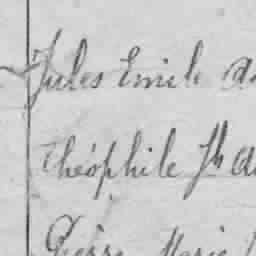 Jules Emile
Théophile Jh
Pierre Marie